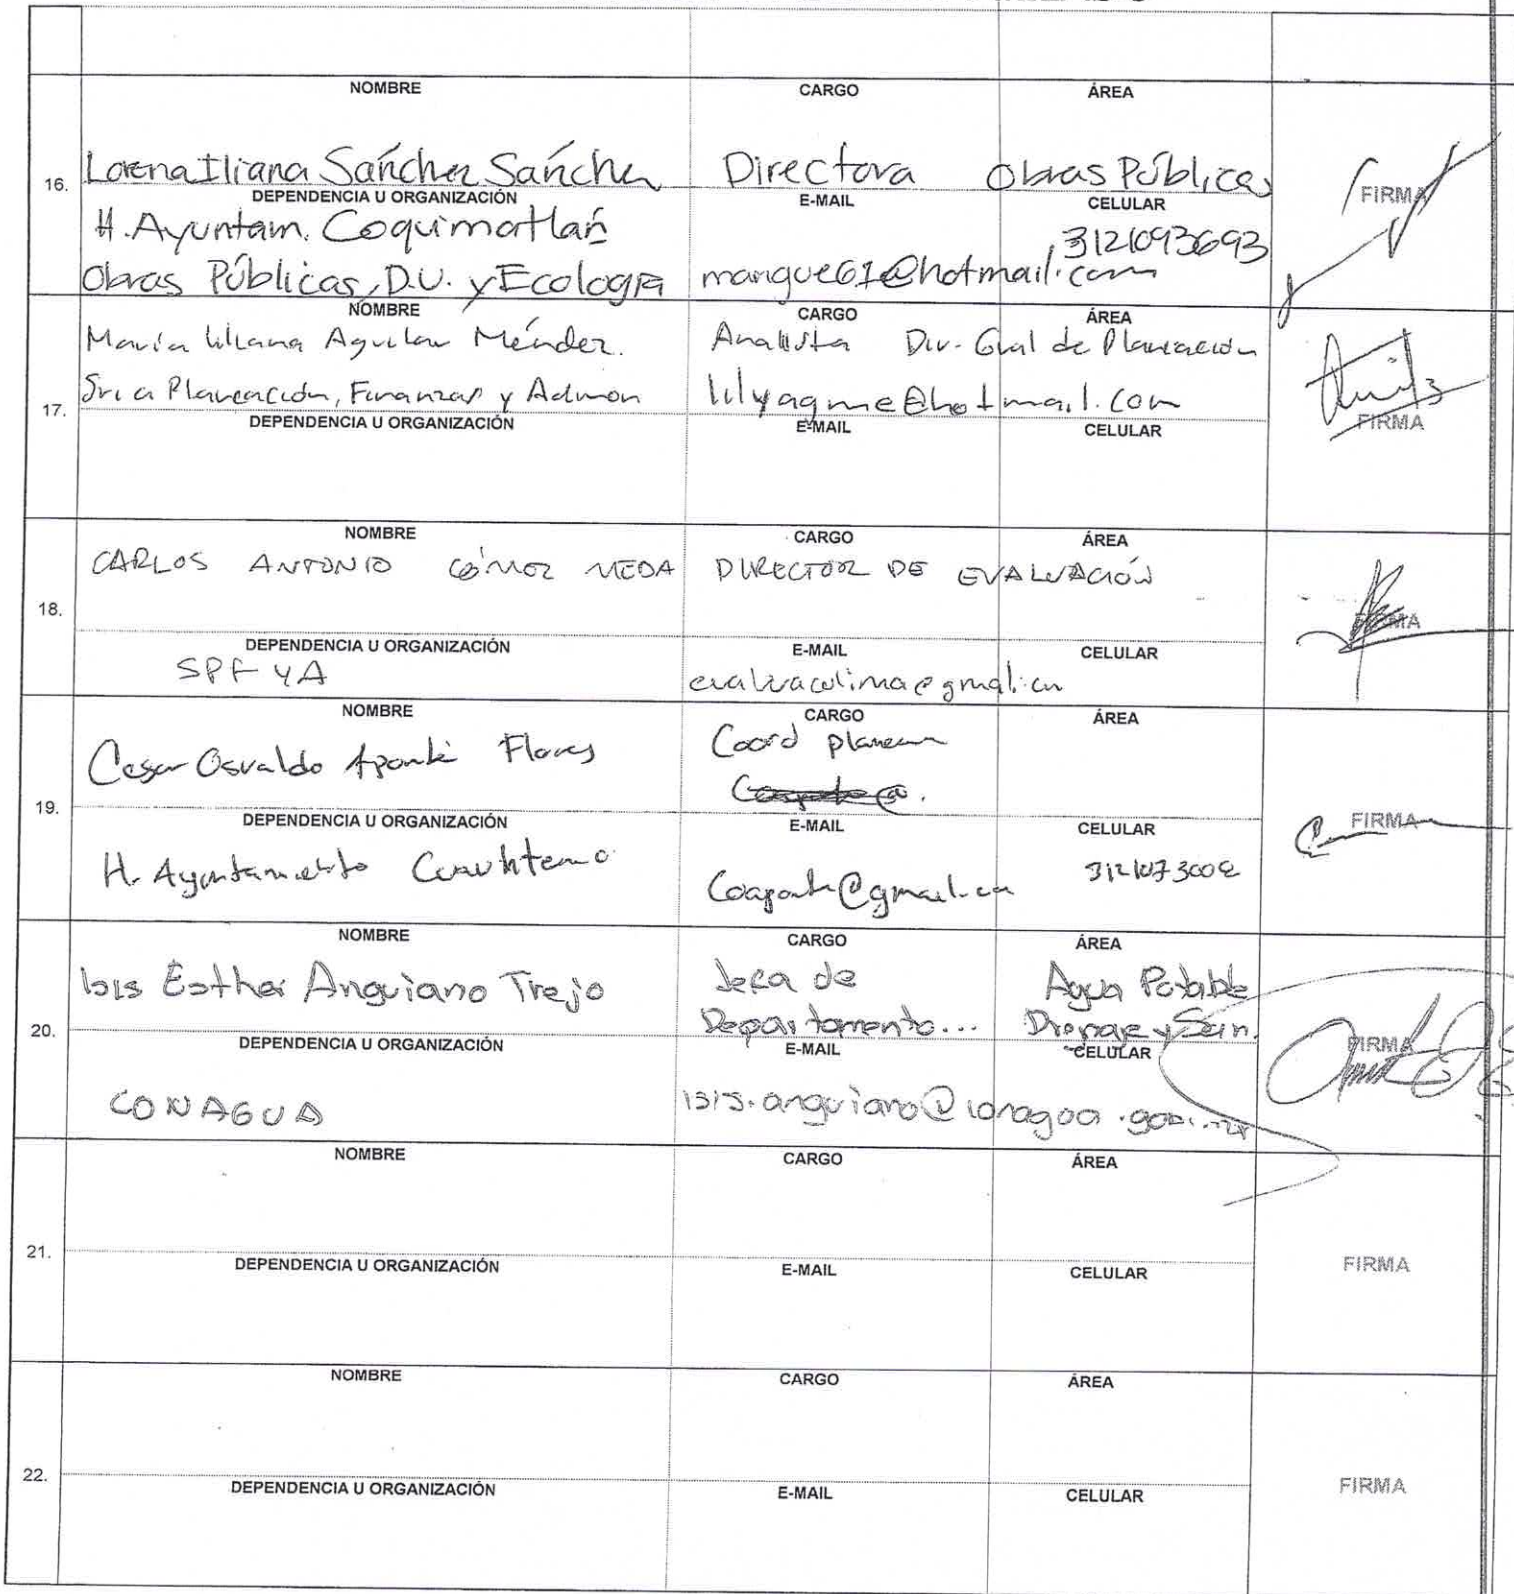 NOMBRE CARGO ÁREA
16. Lorena Iliana Sánchez Sánchez Directora Obras Públicas FIRMA
DEPENDENCIA U ORGANIZACIÓN E-MAIL CELULAR
H. Ayuntam. Coquimatlán 3121093693
Obras Públicas, D.U. y Ecología mangue61@hotmail.com
NOMBRE CARGO ÁREA
María Liliana Aguilar Méndez. Analista Dir. Gral de Planeación
Sría Planeación, Finanzas y Admón lilyagme@hotmail.com
17. DEPENDENCIA U ORGANIZACIÓN E-MAIL CELULAR FIRMA
NOMBRE CARGO ÁREA
CARLOS ANTONIO GÓMEZ MEDA DIRECTOR DE EVALUACIÓN
18. FIRMA
DEPENDENCIA U ORGANIZACIÓN E-MAIL CELULAR
SPF YA evaluacolima@gmail.com
NOMBRE CARGO ÁREA
Cesar Osvaldo Aponte Flores Coord
19. FIRMA
DEPENDENCIA U ORGANIZACIÓN E-MAIL CELULAR
H. Ayuntamiento Cuauhtemoc
NOMBRE CARGO ÁREA
Isis Esther Anguiano Trejo Jefa de Agua Potable
20. Departamento... Drenaje y San. FIRMA
DEPENDENCIA U ORGANIZACIÓN E-MAIL CELULAR
CONAGUA isis.anguiano@conagua.gob.mx
NOMBRE CARGO ÁREA
21. FIRMA
DEPENDENCIA U ORGANIZACIÓN E-MAIL CELULAR
NOMBRE CARGO ÁREA
22. FIRMA
DEPENDENCIA U ORGANIZACIÓN E-MAIL CELULAR